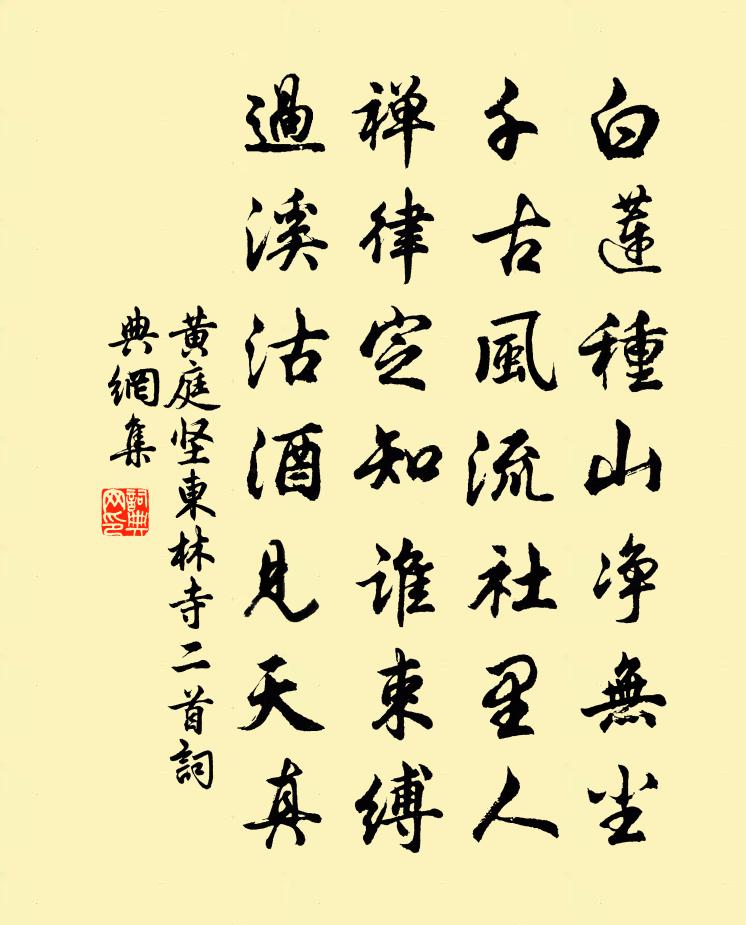 白蓮種山净無尘
千古風流社里人
禅律定知誰束缚
過溪沽酒見天真
黄庭坚東林寺二首詞
典網集
詞典
网印